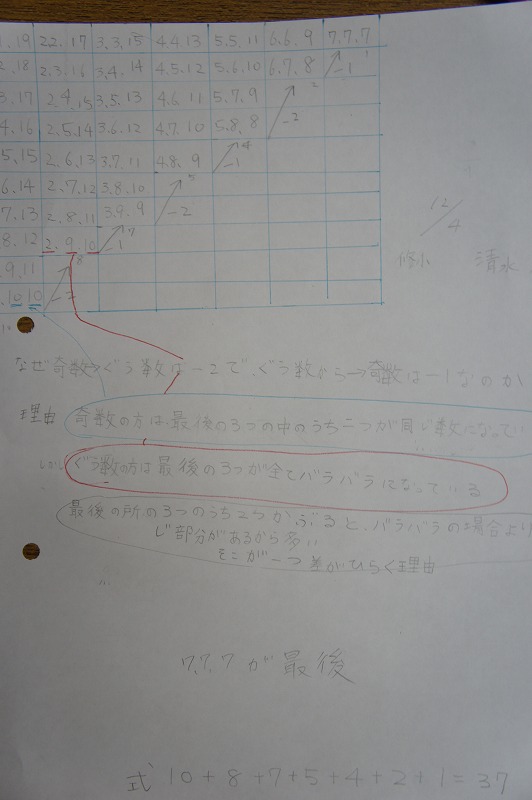 1.19 2.2.17 3.3.15 4.4.13 5.5.11 6.6.9 7.7.7
2.18 2.3.16 3.4.14 4.5.12 5.6.10 6.7.8 -1
3.17 2.4.15 3.5.13 4.6.11 5.7.9
4.16 2.5.14 3.6.12 4.7.10 5.8.8 -2
5.15 2.6.13 3.7.11 4.8.9 -1
6.14 2.7.12 3.8.10
7.13 2.8.11 3.9.9 -2
8.12 2.9.10 1
9.11
10.10
12/4
清水
なぜ奇数→ぐう数は-2で、ぐう数から→奇数は-1なのか
理由 奇数の方は、最後の3つの中のうち二つが同じ数になってい
ぐう数の方は最後の3つが全てバラバラになっている
最後の所の3つのうち2つかぶると、バラバラの場合より
じ部分があるから多い
そこが一つ差がひらく理由
7.7.7が最後
式 10+8+7+5+4+2+1=37